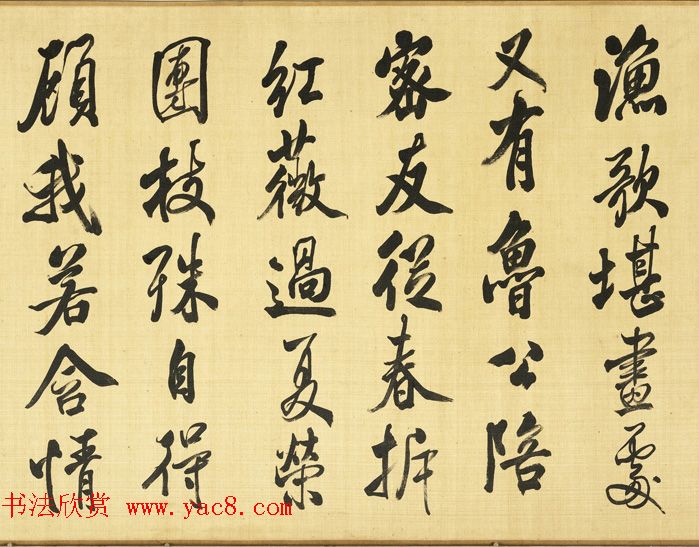 漁歌堪畫處
又有魯公陪
密友従春拆
紅薇過夏榮
團枝殊自得
顧我若含情
书法欣赏 www.yac8.com